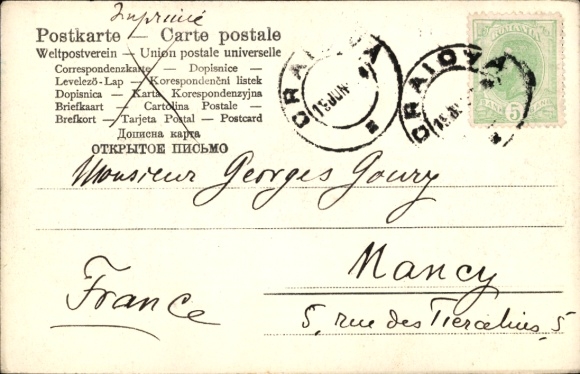 Imprimé
Postkarte — Carte postale
Weltpostverein — Union postale universelle
Correspondenzkarte — Dopisnice —
Levelező-Lap — Korespondenční listek
Dopisnica — Karta Korespondenzyjna
Briefkaart — Cartolina Postale —
Brefkort — Tarjeta Postal — Postcard
Дописна карта
ОТКРЫТОЕ ПИСЬМО
CRAIOVA
19 JUN
CRAIOVA
ROMANIA
5
Monsieur Georges Goury
Nancy
France
5, rue des Tiercelins, 5